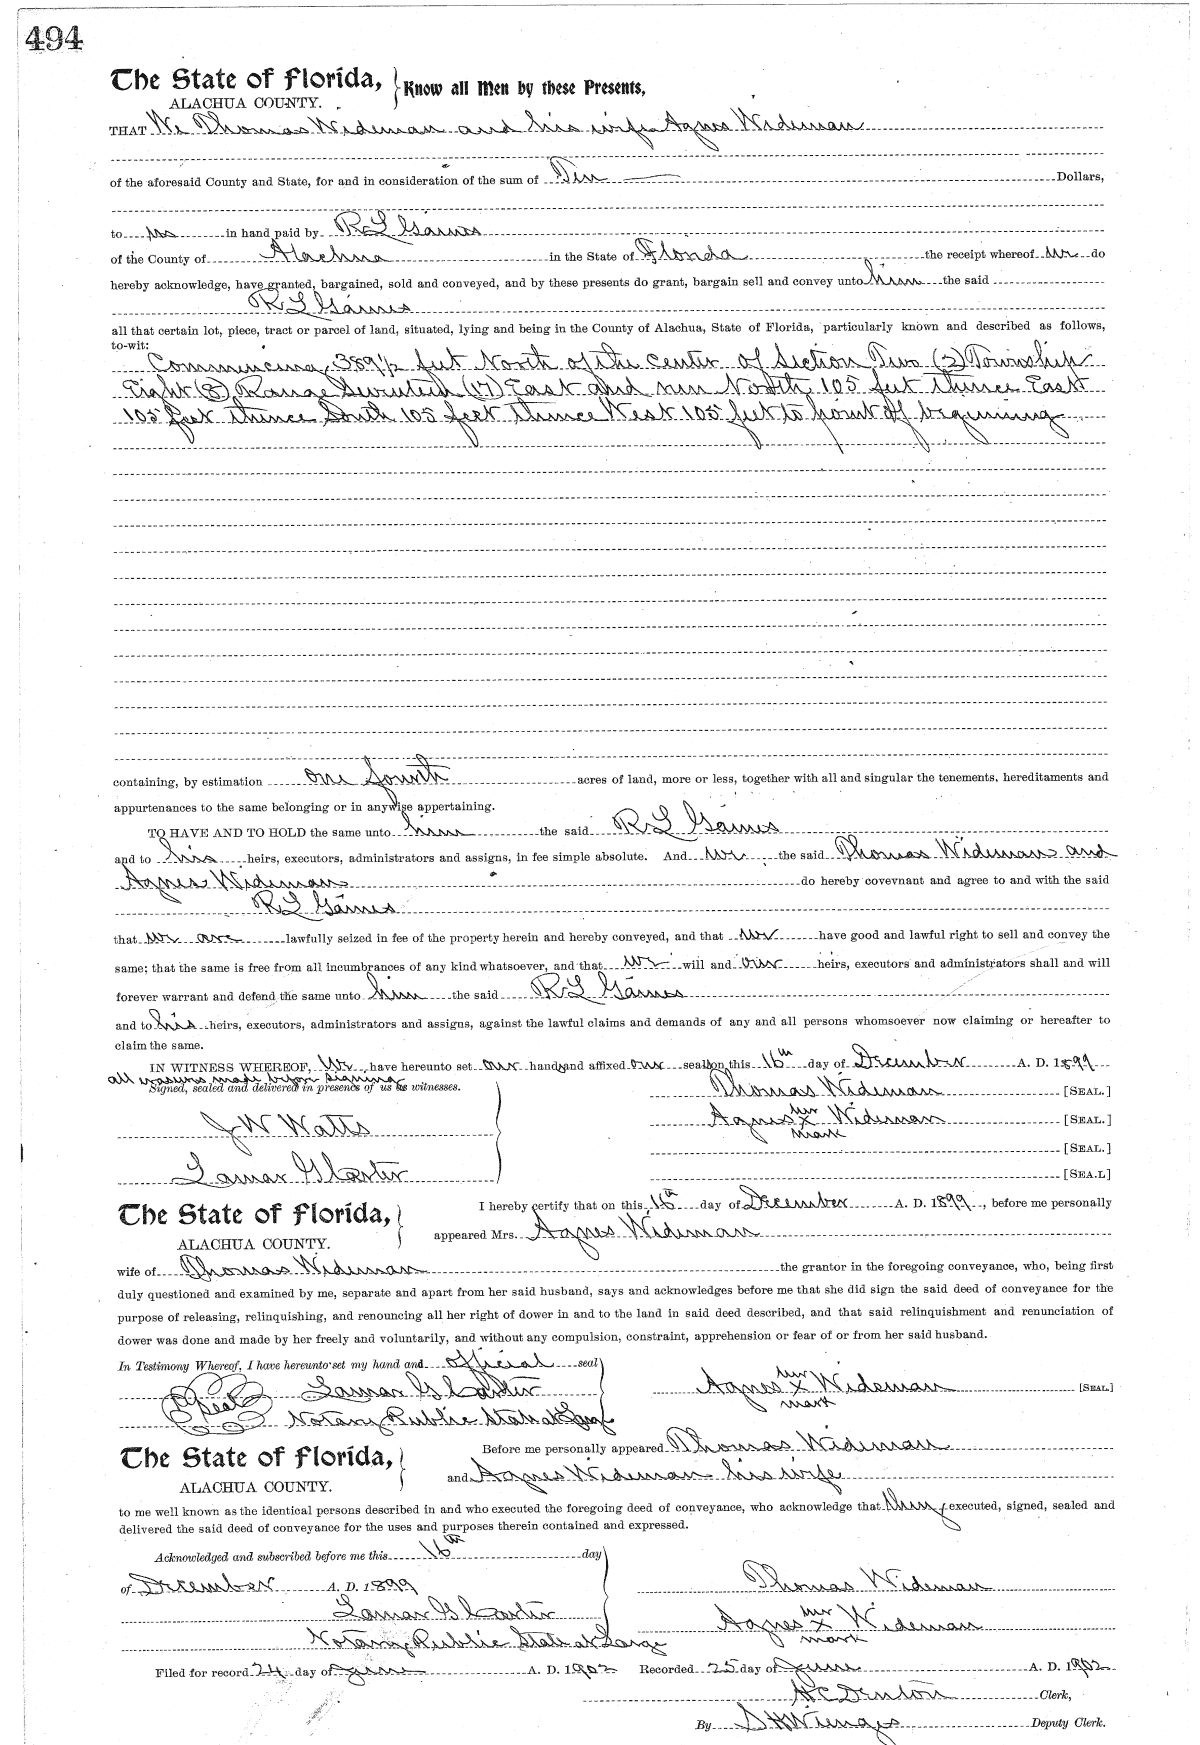 494
The State of Florida, Know all Men by these Presents,
ALACHUA COUNTY.
THAT We Thomas Wideman and his wife Agnes Wideman
of the aforesaid County and State, for and in consideration of the sum of Ten Dollars,
to us in hand paid by R L Gaines
of the County of Alachua in the State of Florida the receipt whereof we do
hereby acknowledge, have granted, bargained, sold and conveyed, and by these presents do grant, bargain sell and convey unto him the said
R L Gaines
all that certain lot, piece, tract or parcel of land, situated, lying and being in the County of Alachua, State of Florida, particularly known and described as follows,
to-wit:
Commencing 389½ feet North of the center of Section Two (2) Township
Eight (8) Range Seventeen (17) East and run North 105 feet thence East
105 feet thence South 105 feet thence West 105 feet to point of beginning
containing, by estimation one fourth acres of land, more or less, together with all and singular the tenements, hereditaments and
appurtenances to the same belonging or in anywise appertaining.
TO HAVE AND TO HOLD the same unto him the said R L Gaines
and to his heirs, executors, administrators and assigns, in fee simple absolute. And we the said Thomas Wideman and
Agnes Wideman do hereby covevnant and agree to and with the said
R L Gaines
that we are lawfully seized in fee of the property herein and hereby conveyed, and that we have good and lawful right to sell and convey the
same; that the same is free from all incumbrances of any kind whatsoever, and that we will and our heirs, executors and administrators shall and will
forever warrant and defend the same unto him the said R L Gaines
and to his heirs, executors, administrators and assigns, against the lawful claims and demands of any and all persons whomsoever now claiming or hereafter to
claim the same.
IN WITNESS WHEREOF, We have hereunto set our hands and affixed our seals on this 16th day of December A. D. 1899
all erasures made before signing
Signed, sealed and delivered in presence of us as witnesses.
Thomas Wideman [SEAL.]
J W Watts
Agnes her x mark Wideman [SEAL.]
[SEAL.]
Lamar G Carter
[SEA.L]
The State of Florida,
ALACHUA COUNTY.
I hereby certify that on this 16th day of December A. D. 1899, before me personally
appeared Mrs. Agnes Wideman
wife of Thomas Wideman the grantor in the foregoing conveyance, who, being first
duly questioned and examined by me, separate and apart from her said husband, says and acknowledges before me that she did sign the said deed of conveyance for the
purpose of releasing, relinquishing, and renouncing all her right of dower in and to the land in said deed described, and that said relinquishment and renunciation of
dower was done and made by her freely and voluntarily, and without any compulsion, constraint, apprehension or fear of or from her said husband.
In Testimony Whereof, I have hereunto set my hand and official seal
Seal Lamar G Carter
Agnes her x mark Wideman [SEAL]
Notary Public State at Large
The State of Florida,
ALACHUA COUNTY.
Before me personally appeared Thomas Wideman
and Agnes Wideman his wife
to me well known as the identical persons described in and who executed the foregoing deed of conveyance, who acknowledge that they executed, signed, sealed and
delivered the said deed of conveyance for the uses and purposes therein contained and expressed.
Acknowledged and subscribed before me this 16th day
of December A. D. 1899
Thomas Wideman
Lamar G Carter
Agnes her x mark Wideman
Notary Public State at Large
Filed for record 24 day of June A. D. 1902 Recorded 25 day of June A. D. 1902
H C Denton Clerk,
By S H Wienges Deputy Clerk.